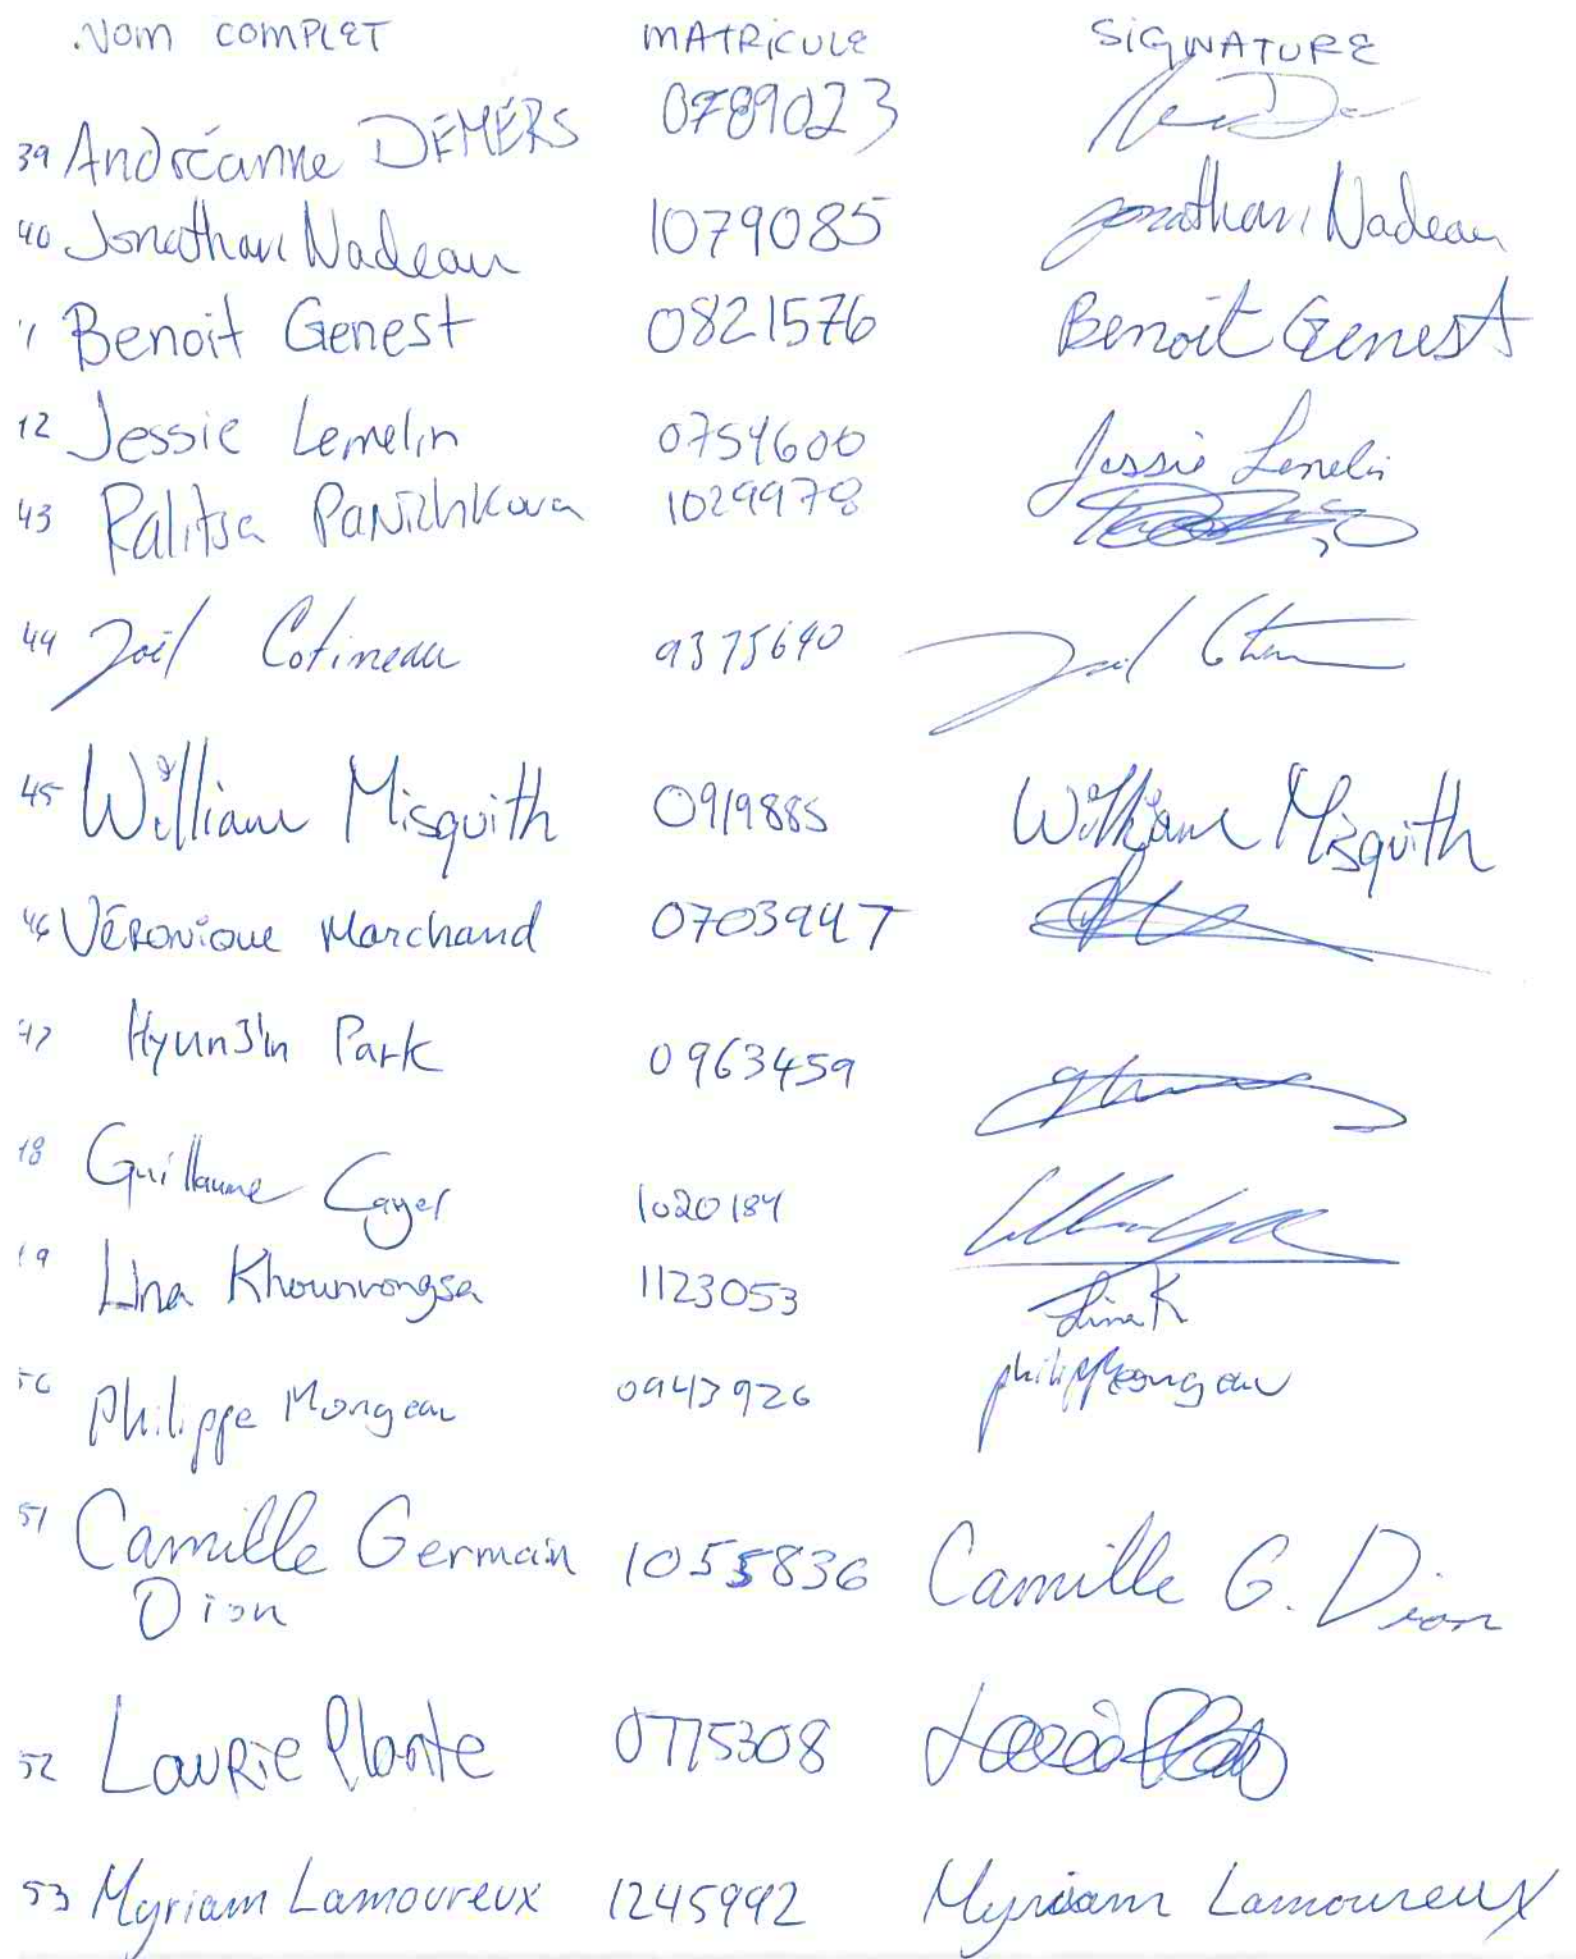 NOM COMPLET MATRICULE SIGNATURE
39 Andréanne DEMERS 0789023
40 Jonathan Nadeau 1079085 Jonathan Nadeau
1 Benoit Genest 0821576 Benoit Genest
12 Jessie Lemelin 0754600 Jessie Lemelin
43 Ralitsa 1029978
44 Joël Cotineau 9375640
45 William Misquith 0919885 William Misquith
46 VÉRONIQUE Marchand 0703947
47 Hyunjin Park 0963459
18 Guillaume Cayer 1020184
19 Lina Khounvongsa 1123053 Lina K
50 Philippe Mongeau 0943926 philippe mongeau
51 Camille Germain 1055836 Camille G. Dion
Dion
52 LAURIE Plante 0775308
53 Myriam Lamoureux 1245992 Myriam Lamoureux